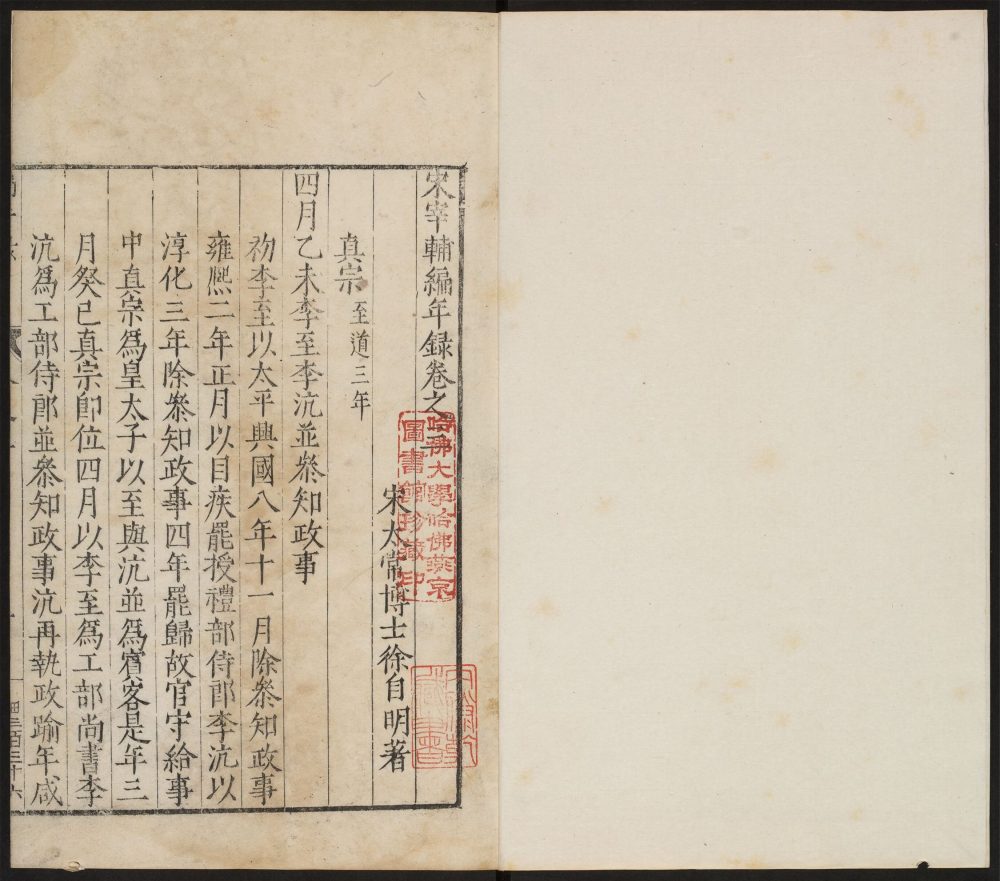 宋宰輔編年錄卷之三
宋太常博士徐自明著
真宗 至道三年
四月乙未李至李沆並叅知政事
初李至以太平興國八年十一月除叅知政事
雍熈二年正月以目疾罷授禮部侍郎李沆以
淳化三年除叅知政事四年罷歸故官守給事
中真宗爲皇太子以至與沆並爲賓客是年三
月癸巳真宗卽位四月以李至爲工部尚書李
沆爲工部侍郎並叅知政事沆再執政踰年咸
哈佛大學哈佛燕京
圖書館珍藏印
藏書